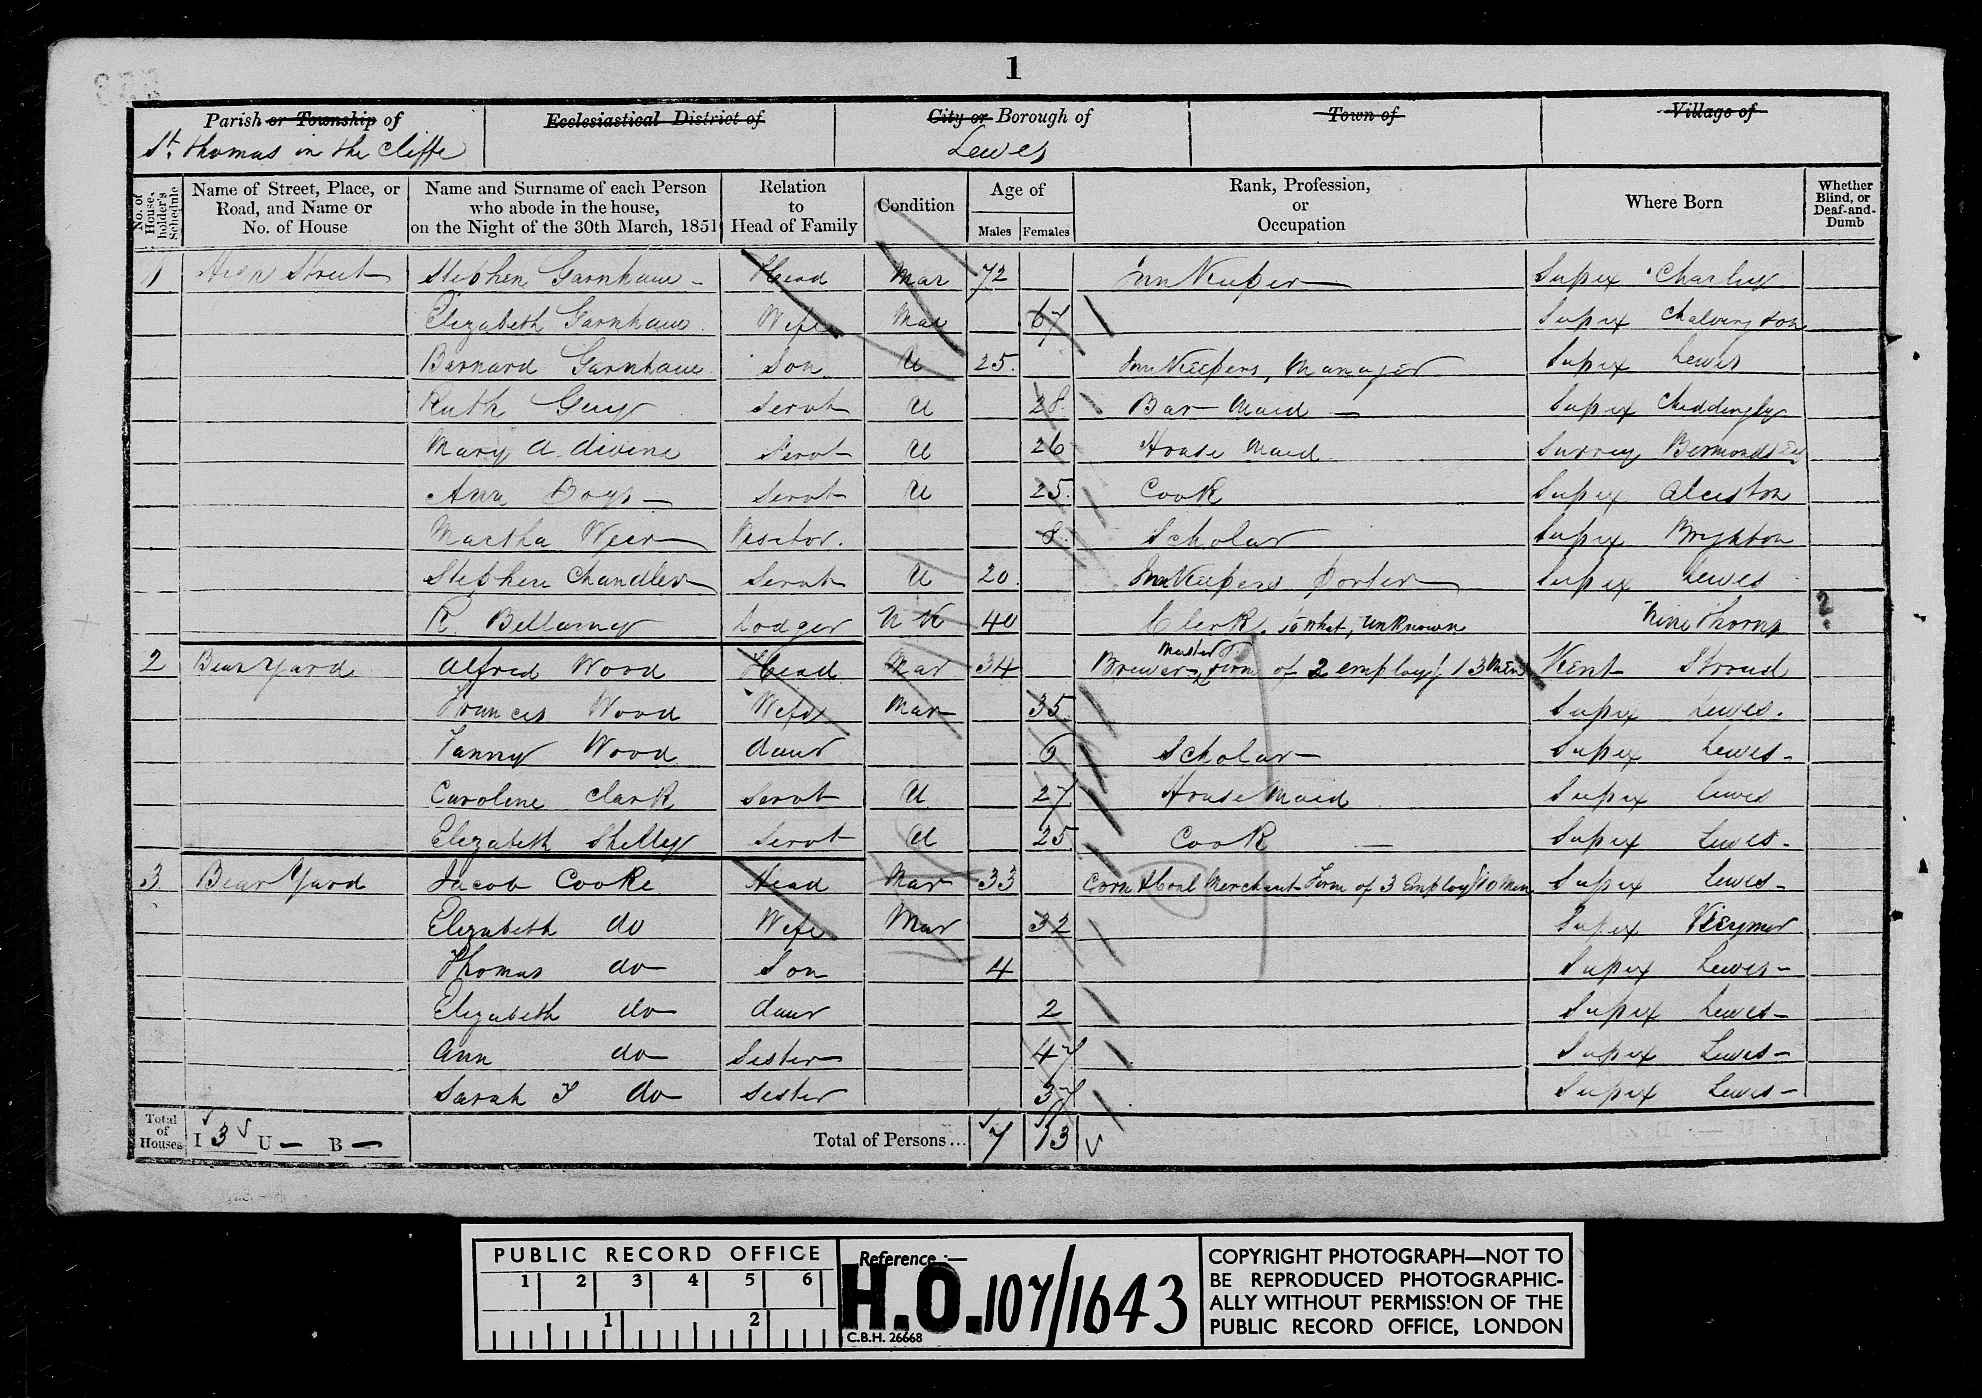 1
Parish or Township of Ecclesiastical District of City or Borough of Town of Village of
St. Thomas in the Cliffe Lewes
No. of House-holder's Schedule Name of Street, Place, or Road, and Name or No. of House Name and Surname of each Person who abode in the house, on the Night of the 30th March, 1851 Relation to Head of Family Condition Age of Males Females Rank, Profession, or Occupation Where Born Whether Blind, or Deaf-and-Dumb
1 High Street Stephen Garnham Head Mar 72 Inn Keeper Sussex Chailey
Elizabeth Garnham Wife Mar 67 Sussex Chalvington
Bernard Garnham Son U 25 Inn Keepers, Manager Sussex Lewes
Ruth Guy Servt U 28 Bar Maid Sussex Chiddingly
Mary A. divine Servt U 26 House Maid Surrey
Ann Servt U 25 Cook Sussex Alciston
Martha Weer Visitor 8 Scholar Sussex Brighton
Stephen Chandler Servt U 20 InnKeepers Porter Sussex Lewes
R. Bellamy Lodger N K 40 Clerk, to what, unknown ?
2 Bear Yard Alfred Wood Head Mar 34 Brewer Master Firm of 2 employg 13 Men Kent Stroud
Frances Wood Wife Mar 35 Sussex Lewes
Fanny Wood daur 6 Scholar Sussex Lewes
Caroline Clark Servt U 27 House Maid Sussex Lewes
Elizabeth Shelley Servt U 25 Cook Sussex Lewes
3 Bear Yard Jacob Cooke Head Mar 33 Corn & Coal Merchant Firm of 3 Employg 10 Men Sussex Lewes
Elizabeth do Wife Mar 32 Sussex Keymer
Thomas do Son 4 Sussex Lewes
Elizabeth do daur 2 Sussex Lewes
Ann do Sister 47 Sussex Lewes
Sarah do Sister 37 Sussex Lewes
Total of Houses I 3 U — B — Total of Persons... 7 13
PUBLIC RECORD OFFICE
1 2 3 4 5 6
1 2
Reference :—
H.O. 107/1643
C.B.H. 26668
COPYRIGHT PHOTOGRAPH—NOT TO
BE REPRODUCED PHOTOGRAPHIC-
ALLY WITHOUT PERMISSION OF THE
PUBLIC RECORD OFFICE, LONDON